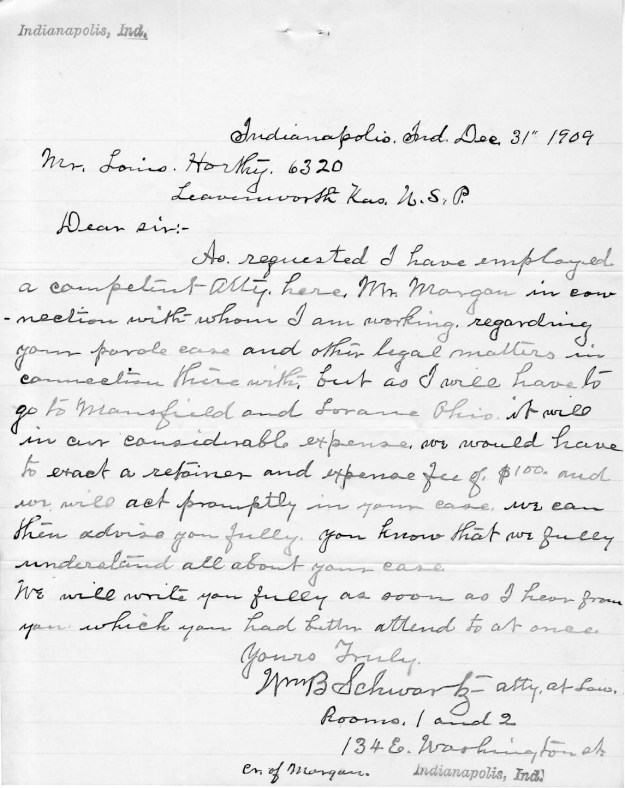 Indianapolis, Ind.
Indianapolis. Ind. Dec. 31" 1909
Mr. Louis. Horthy. 6320
Leavenworth Kas. U. S. P.
Dear sir:-
As. requested I have employed
a competent Atty. here, Mr. Morgan in con
-nection with whom I am working. regarding
your parole case and other legal matters in
connection there with, but as I will have to
go to Mansfield and Lorane Ohio. it will
in cur considerable expense. we would have
to exact a retainer and expense fee of. $100. and
we will act promptly in your case. we can
then advise you fully. you know that we fully
understand all about your case
We will write you fully as soon as I hear from
you which you had better attend to at once.
Yours Truly.
Wm B Schwartz atty. at Law.
Rooms. 1 and 2
134 E. Washington st
cr. of Morgan.
Indianapolis, Ind.